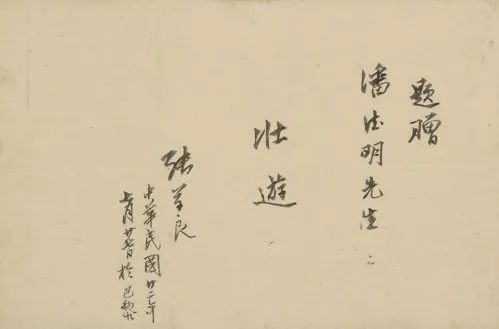 題贈
潘德明先生
壯遊
張學良
中華民國廿二年
七月廿七日於巴黎